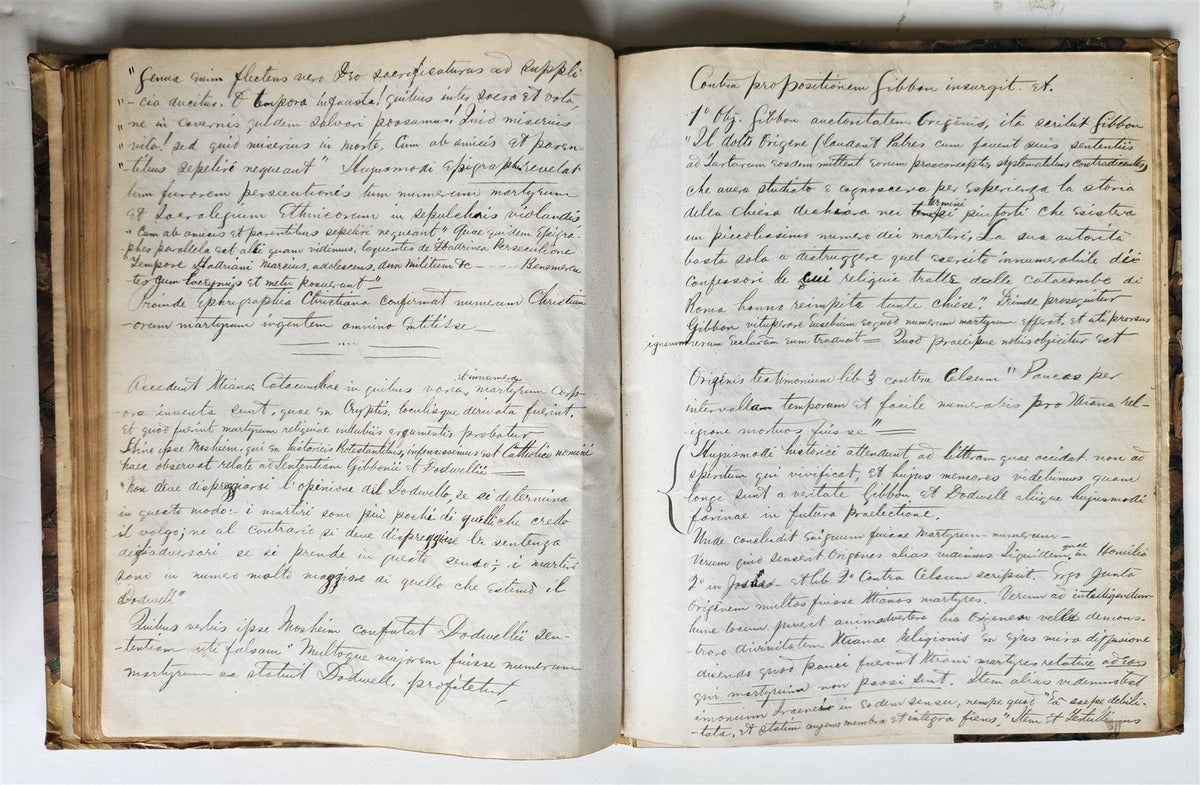 "Genua enim flectens vero Deo sacrificaturus ad suppli
"- cia ducitur. O tempora infausta! quibus inter sacra et vota,
"ne in cavernis quidem salvari possumus. Quid miserius
"vita! sed quid miserius in morte, Cum ab amicis et paren-
"-tibus sepeliri nequeant" Hujusmodi epigraphe revelat
tum furorem persecutionis tum numerum martyrum
et Sacrilegium Ethnicorum in sepulchris violandis
"Cum ab amicis et parentibus sepeliri nequeant" Quae quidem Epigra-
phes parallela est alii quam vidimus, loquentes de Hadrinea Persecutione
"Tempore Hadriani Marcius, adolescens, dux militum &c - - - - - Benemeren-
tes cum lacrymis et metu posuerunt"
Proinde Ephigraphia Christiana confirmat numerum Christian-
-orum martyrum ingentem omnino extitisse -
Accedunt Xtianae Catacumbae in quibus varia, et innumera martyrum Corp-
ora inventa sunt, quae en Cryptis, loculisque servata fuerint,
et quod fuerint martyrum reliquiae indubiis argumentis probatur
Hinc ipse Mosheim, qui en historicis Protestantibus, infensissimus est Catholico nomini
haec observat relate ad Sententiam Gibbonii et Dodwellii =
"Non deve dispreggiarsi l'opinione dil Dodwello, se si determina
in questo modo:- i martiri sono piu pochi di quelli che credo
il volgo; ne al contrario si deve dispreggiare la sentenza
degl'adversari se si prende in questo senso:- i martiri
sono in numero molto maggiore di quello che estimò il
Dodwell."
Quibus verbis ipse Mosheim confutat Dodwellii sen-
-tentiam uti falsam "Multoque majorem fuisse numerum
martyrum ac statuit Dodwell, profitetur,
Contra propositionem Gibbon insurgit. Et.
1° Obj. Gibbon auctoritatem Origenis, ita scribit Gibbon
"Il dotto Origene (laudant Patres cum favent suis sententiis
ad Tartarum eosdem mittent eorum praeconceptis systematibus contradicentes)
che avera studiato e cognosceva per esperienza la storia
della chiesa dechiara nei termini piu forti che esisteva
un piccolissimo numero dei martiri, La sua autorità
basta sola a distruggere quel esercito innumerabile di
confessori le cui religuie tratte dalle catacombe di
Roma hanno reimpito tante chiese". Deinde prosequitur
Gibbon vituperare Eusebium eo quod numerum martyrum efferat, et uti prorsus
ignarum rerum Ecclarum eum traducit = Quod praecipue nobis objicitur est
Originis testimonium lib 3 contra Celsum "Paucos per
intervallam temporum et facile numerabiles pro Xtiana rel-
igione mortuos fuisse" =
Hujusmodi historici attendunt ad litteram quae occidat non ad
spiritum qui vivificat, et hujus memores videbimus quam
longe sunt a veritate Gibbon et Dodwell aliique hujusmodi
farinae in futura Praelectione.
Unde concludit Exiguum fuisse Martyrum numerum -
Verum quid senserit Origenes alias vidimus siquidem quae in Homilia
2° in Josue et lib 2° Contra Celsum scripsit. Ergo Juxta
Originem multos fuisse Xtianos martyres. Verum ad intelligendum
hunc locum juverit animadvertere hic Originem velle demons-
trare divinitatem Xtianae Religionis en ejus mira diffusione
dicendo quod pauci fuerunt Xtiani martyres relative ad eos
qui martyrium non passi sunt. Item alias vidimus test
imonium Iraenei in eodem sensu, nempe quod "Ea saepe debili-
tata, et statim augens membra et integra fiens." Item et Tertullianus